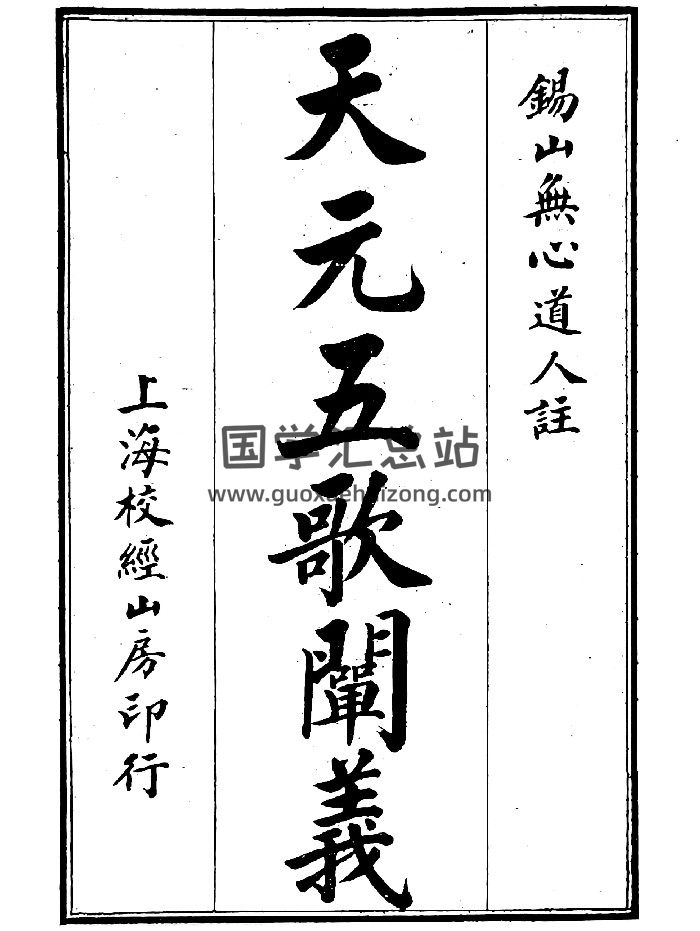 錫山無心道人註
天元五歌闡義
上海校經山房印行
国学汇总站
www.guoxuehuizong.com